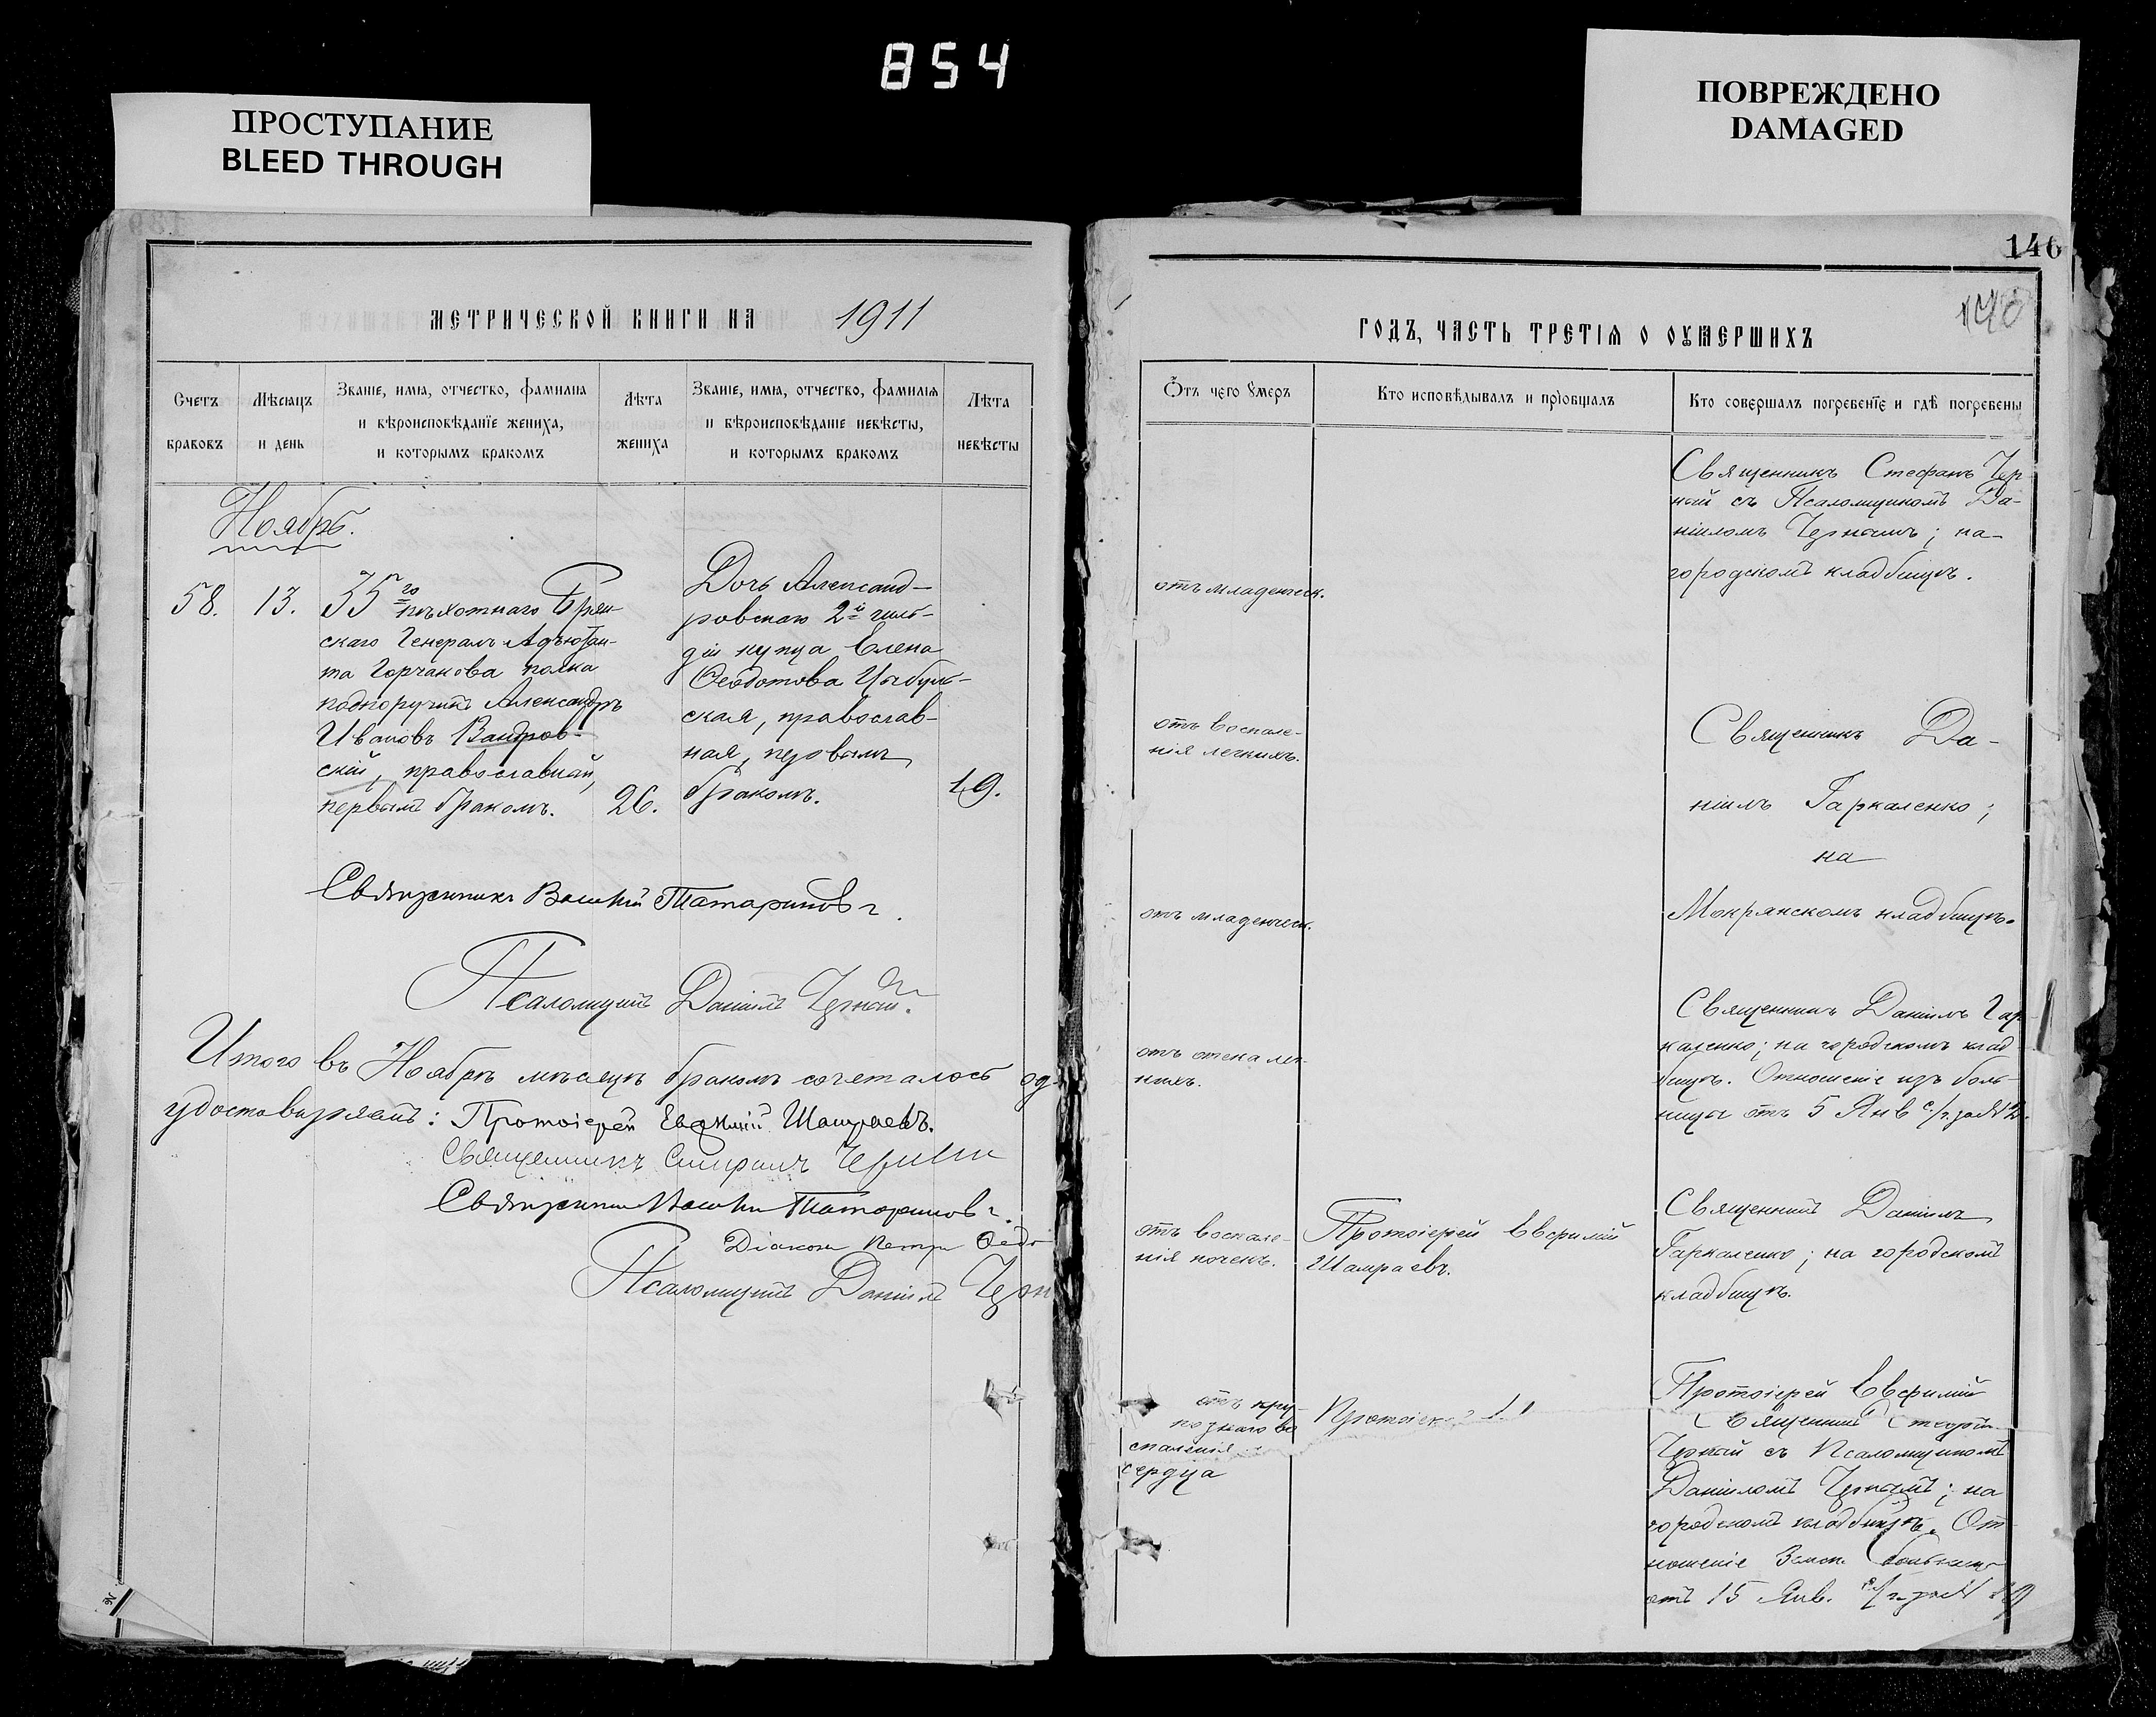 854
ПРОСТУПАНИЕ
BLEED THROUGH
ПОВРЕЖДЕНО
DAMAGED
МЕТРИЧЕСКОЙ КНИГИ НА 1911
Счетъ
браковъ
Мѣсяцъ
и день
Званіе, имя, отчество, фамилія
и вѣроисповѣданіе жениха,
и которымъ бракомъ
Лѣта
жениха
Званіе, имя, отчество, фамилія
и вѣроисповѣданіе невѣсты,
и которымъ бракомъ
Лѣта
невѣсты
Ноябрь.
58. 13.
35го пѣхотнаго Брян-
скаго Генералъ Адъютан-
та Горчакова полка
подпоручикъ Александръ
Ивановъ Вандров-
скій, православный,
первымъ бракомъ.
26.
Дочь Александ-
ровскаго 2й гиль-
діи купца Елена
Ѳеодотова Цыбуль-
ская, православ-
ная, первымъ
бракомъ.
19.
Священникъ Василій Татариновъ.
Псаломщикъ Даніилъ Черный.
Итого въ Ноябрѣ мѣсяцѣ бракомъ сочеталось од-
удостовѣряемъ: Протоіерей Евѳимій Шамраевъ.
Священникъ Стефанъ Черный
Священникъ Василій Татариновъ.
Діаконъ Петръ Ѳедо
Псаломщикъ Даніилъ Черн
146
140
ГОДЪ, ЧАСТЬ ТРЕТІЯ О ОУМЕРШИХЪ
Отъ чего умеръ
Кто исповѣдывалъ и пріобщалъ
Кто совершалъ погребеніе и гдѣ погребены
отъ младенческ.
Священникъ Стефанъ Чер-
ный съ Псаломщикомъ Да-
ніиломъ Чернымъ; на
городскомъ кладбищѣ.
отъ воспале-
нія легкихъ.
Священникъ Да-
ніилъ Гаркаленко;
на
Мокрянскомъ кладбищѣ.
отъ младенческ.
отъ отека лег-
кихъ.
Священникъ Даніилъ Гар-
каленко; на городскомъ клад-
бищѣ. Отношеніе изъ боль-
ницы отъ 5 Янв с/г. за № 2.
отъ воспале-
нія почекъ.
Протоіерей Евѳимій
Шамраевъ.
Священникъ Даніилъ
Гаркаленко; на городскомъ
кладбищѣ.
отъ кру-
познаго во
спаленія
сердца
Протоіер
Протоіерей Евѳимій
Священникъ Стефанъ
Черный съ Псаломщикомъ
Даніиломъ Чернымъ; на
городскомъ кладбищѣ. От-
ношеніе Земск. больницы
отъ 15 Янв. с/г. за №